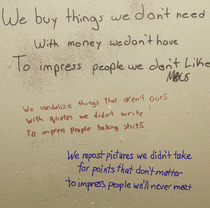 We buy things we don't need
With money we don't have
To impress people we don't Like
We vandalize things that aren't ours
With quotes we didn't write
To impress people taking shits
We repost pictures we didn't take
for points that don't matter
to impress people we'll never meet